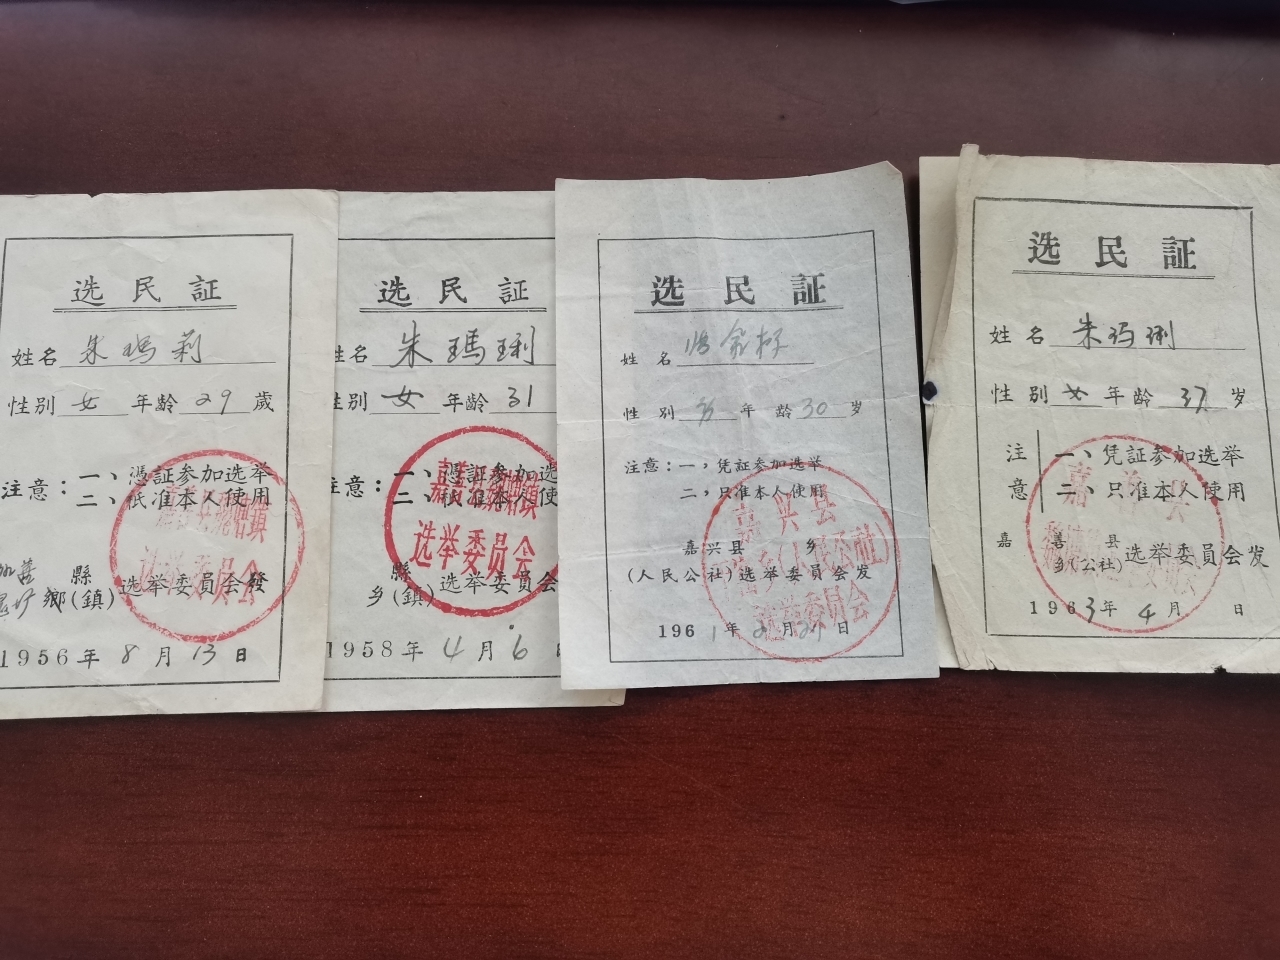 选民証
姓名 朱瑪莉
性别 女 年齡 29 歲
注意：一、憑証参加选举
二、祇准本人使用
縣
鄉(鎮)选举委员会發
1956年8月13日
选民証
姓名 朱瑪琍
性别 女 年齡 31
注意：一、憑証参加选
二、祇准本人使
縣
乡(鎮)选举委员会
1958年4月6
选举委员会
选民証
姓名
性别 年龄 30 岁
注意：一，凭証参加选举
二，只准本人使用
嘉兴县 乡
(人民公社)选举委员会发
1961年2月 日
嘉兴县
选举委员会
选民証
姓名 朱玛琍
性别 女 年龄 37 岁
注意
一、凭证参加选举
二、只准本人使用
嘉善县
乡(公社)选举委员会发
1963年4月 日